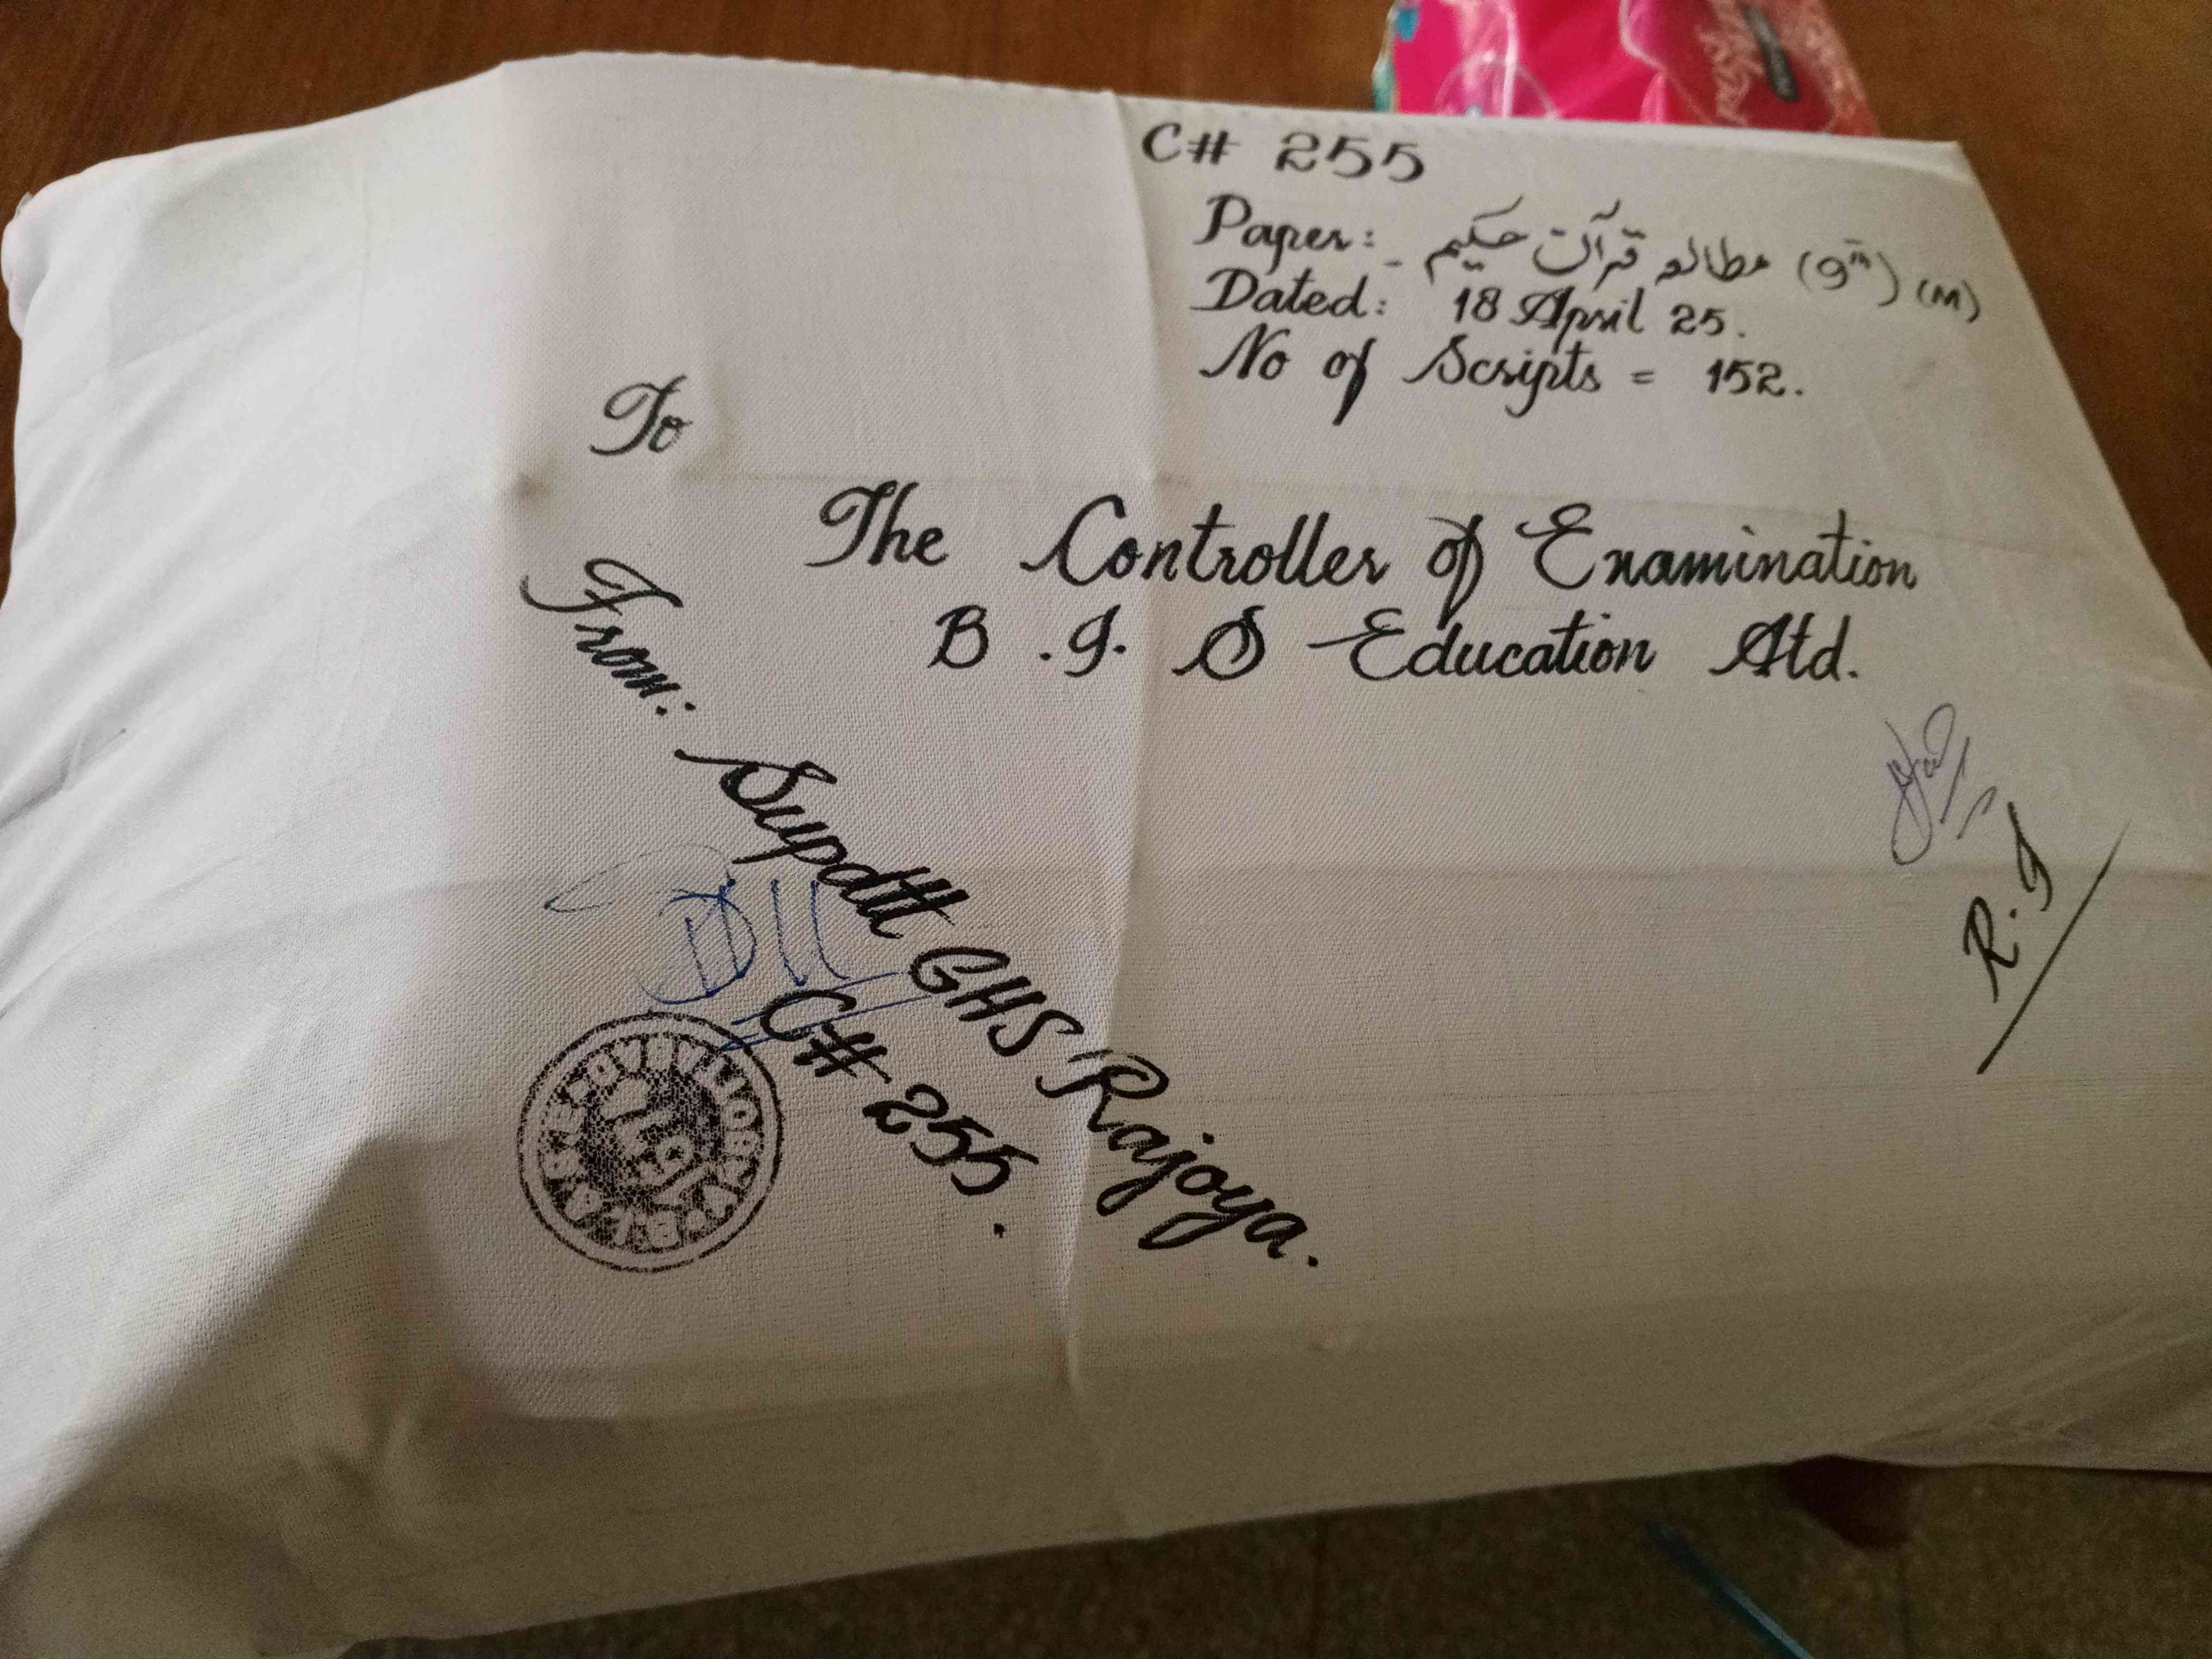 C# 255
Paper: مطالعہ قرآن حکیم (9th) (M)
Dated: 18 April 25.
No of Scripts = 152.
To
The Controller of Examination
B.I. S Education Atd.
From: Supdtt GHS Rajoya.
C# 255.
R.I